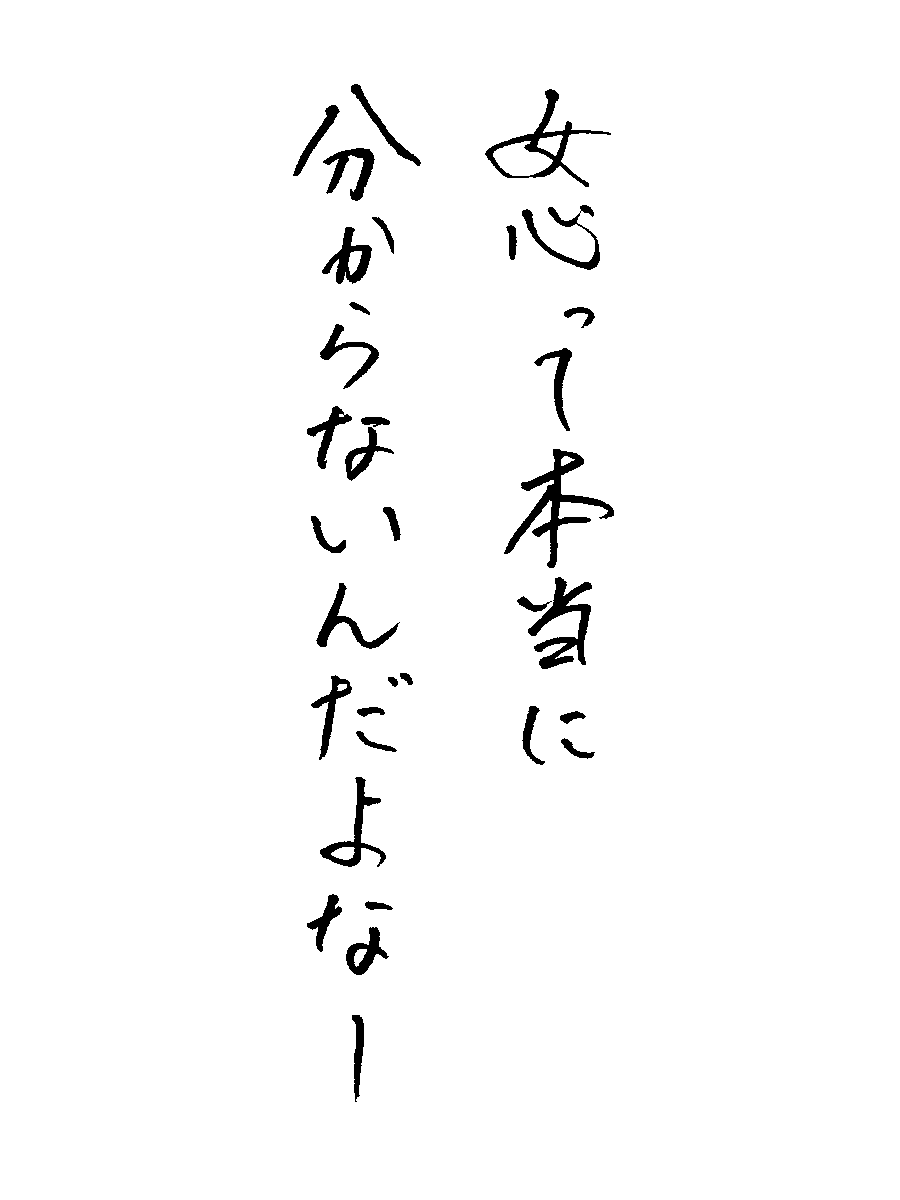 女心って本当に
分からないんだよなー